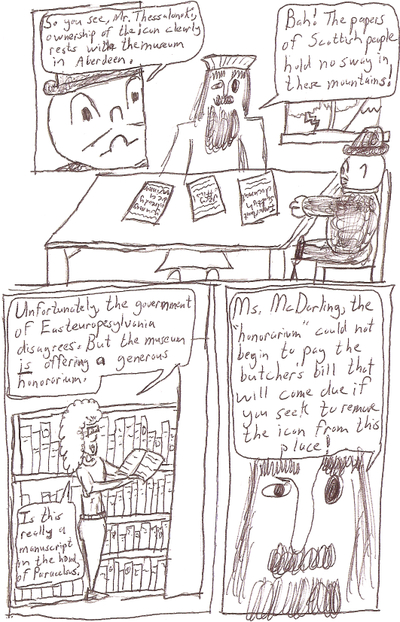 So you see, Mr. Thessaloniki,
ownership of the icon clearly
rests with the museum
in Aberdeen.
Bah! The papers
of Scottish people
hold no sway in
these mountains!
Unfortunately, the government
of Easteuropesylvania
disagrees. But the museum
is offering a generous
honorarium.
Is this
really a
manuscript
in the hand
of Paracelsus.
Ms. McDarling, the
"honorarium" could not
begin to pay the
butcher's bill that
will come due if
you seek to remove
the icon from this
place!